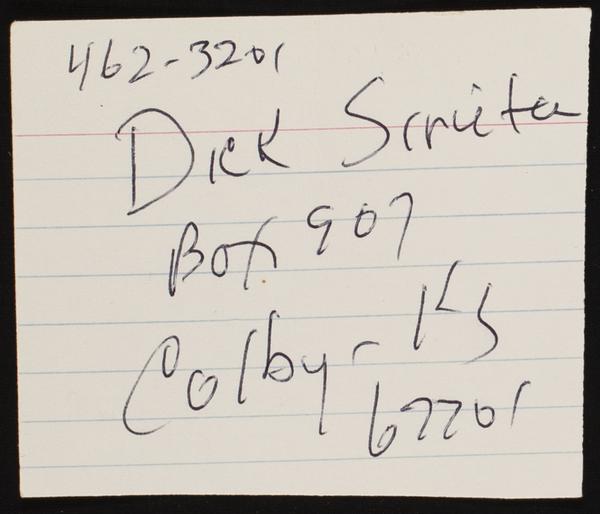 462-3201
Dick
Box 907
Colby - KS
67701